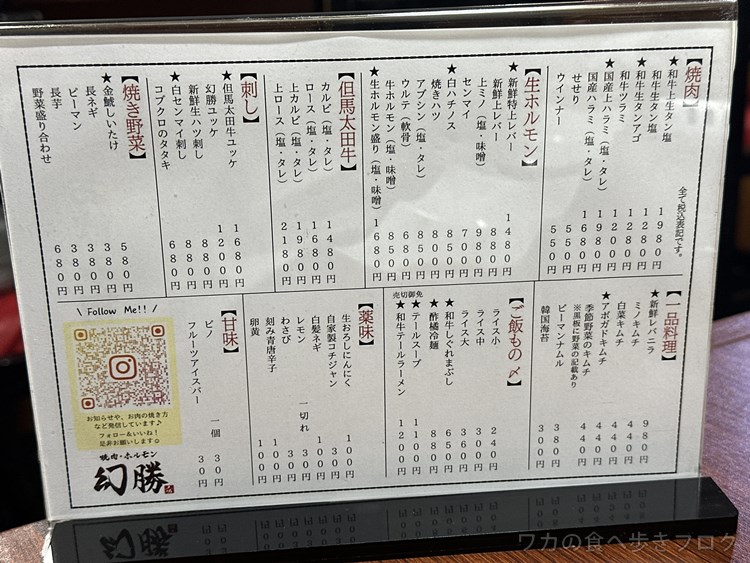 全て税込表記です。
【焼肉】
★和牛上生タン塩 1980円
★和牛生タン塩 1280円
★和牛生タンアゴ 1280円
和牛ツラミ 1200円
★国産上ハラミ（塩・タレ） 1980円
国産ハラミ（塩・タレ） 1680円
せせり 550円
ウインナー 550円
【生ホルモン】
★新鮮特上レバー 1480円
新鮮上レバー 980円
上ミノ（塩・味噌） 880円
センマイ
★白ハチノス
焼きハツ
アブシン（塩・タレ）
ウルテ（軟骨）
生ホルモン（塩・味噌）
★生ホルモン盛り（塩・味噌） 1680円
【但馬太田牛】
カルビ（塩・タレ） 1480円
ロース（塩・タレ） 1680円
上カルビ（塩・タレ） 1980円
上ロース（塩・タレ） 2180円
【刺し】
★但馬太田牛ユッケ 1680円
幻勝ユッケ 1200円
新鮮生ハツ刺し 880円
★白センマイ刺し 880円
コブクロのタタキ 680円
【焼き野菜】
★金鯱しいたけ 580円
長ネギ 380円
ピーマン 380円
長芋 380円
野菜盛り合わせ 680円
【一品料理】
★新鮮レバニラ 980円
ミノキムチ 440円
白菜キムチ 440円
★アボガドキムチ 440円
季節野菜のキムチ 440円
※黒板に野菜の記載あり
ピーマンナムル 380円
韓国海苔 300円
【ご飯もの〆】
ライス小 240円
ライス中 300円
ライス大 360円
★和牛しぐれまぶし 650円
★酢橘冷麺 880円
★テールスープ 1100円
売切御免
★和牛テールラーメン 1200円
【薬味】
生おろしにんにく 100円
自家製コチジャン
白髪ネギ
レモン 一切れ
わさび
刻み青唐辛子
卵黄 100円
【甘味】
ピノ 一個 30円
フルーツアイスバー
\ Follow Me!! /
お知らせや、お肉の焼き方
など発信しています♪
フォロー＆いいね！
是非お願いします☺
焼肉・ホルモン
幻勝
ワカの食べ歩きブログ